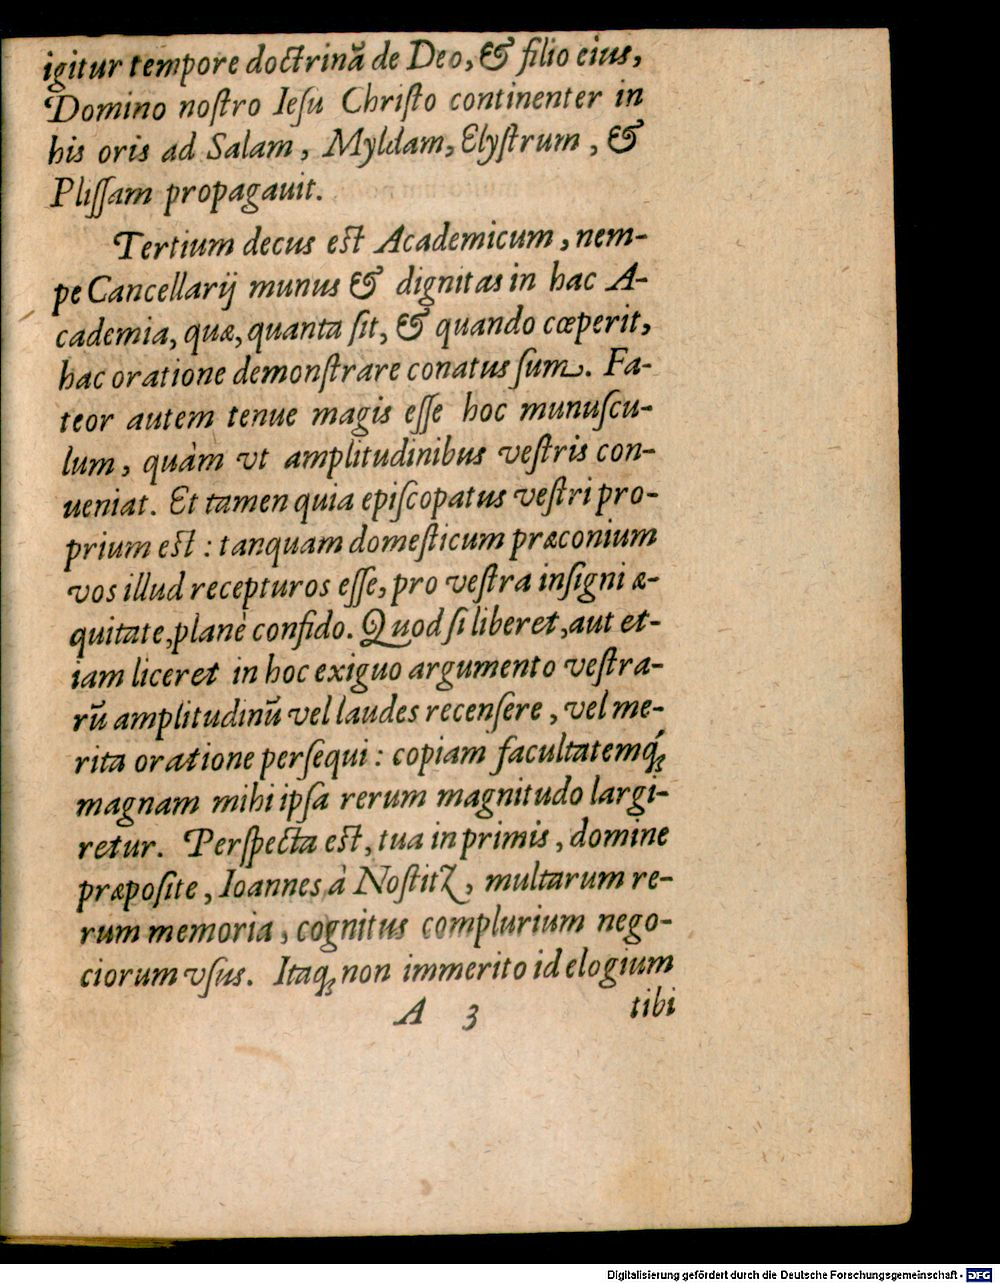 igitur tempore doctrinã de Deo, & filio eius,
Domino noſtro Ieſu Chriſto continenter in
his oris ad Salam, Myldam, Elyſtrum, &
Pliſſam propagauit.
Tertium decus eſt Academicum, nem-
pe Cancellarij munus & dignitas in hac A-
cademia, quæ, quanta ſit, & quando cœperit,
hac oratione demonſtrare conatus ſum. Fa-
teor autem tenue magis eſſe hoc munuſcu-
lum, quàm vt amplitudinibus veſtris con-
ueniat. Et tamen quia epiſcopatus veſtri pro-
prium eſt: tanquam domeſticum præconium
vos illud recepturos eſſe, pro veſtra inſigni æ-
quitate, planè confido. Quod ſi liberet, aut et-
iam liceret in hoc exiguo argumento veſtra-
rũ amplitudinũ vel laudes recenſere, vel me-
rita oratione perſequi: copiam facultatemq́;
magnam mihi ipſa rerum magnitudo largi-
retur. Perſpecta eſt, tua in primis, domine
præpoſite, Ioannes à Noſtitz, multarum re-
rum memoria, cognitus complurium nego-
ciorum vſus. Itaq; non immerito id elogium
A 3 tibi
Digitalisierung gefördert durch die Deutsche Forschungsgemeinschaft - DFG